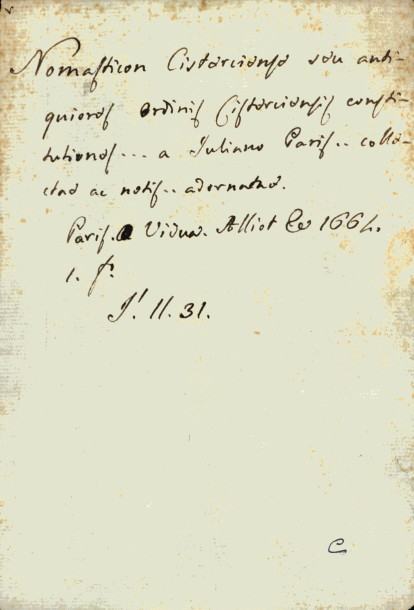 Nomasticon Cisterciense seu anti-
quiores ordinis Cistorciensis consti-
tutiones... a Iuliano Paris.. colle-
ctae ac notis.. adornatae.
Paris. Vidua. Alliot 1664.
1. f.
J! II. 31.
C